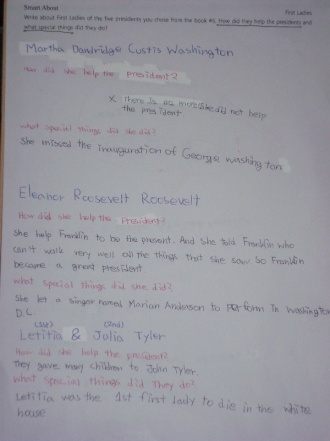 Smart About
First Ladies
Write about First Ladies of the five presidents you chose from the book #6. How did they help the presidents and
what special things did they do?
Martha Dandridge Custis Washington
How did she help the president?
X There is no more she did not help
the president
what special things did she did?
She missed the inauguration of George washington
Eleanor Roosevelt Roosevelt
How did she help the president?
She help Franklin to be the present. And she told Franklin who
can't walk very well all the things that she saw So Franklin
became a great president
what special things did she did?
She let a singer named Marian Anderson to perform in Washington
D.C.
(1st) (2nd)
Letitia & Julia Tyler
How did she help the president?
They gave many children to John Tyler.
what special things did they do?
Letitia was the 1st first lady to die in the white
house